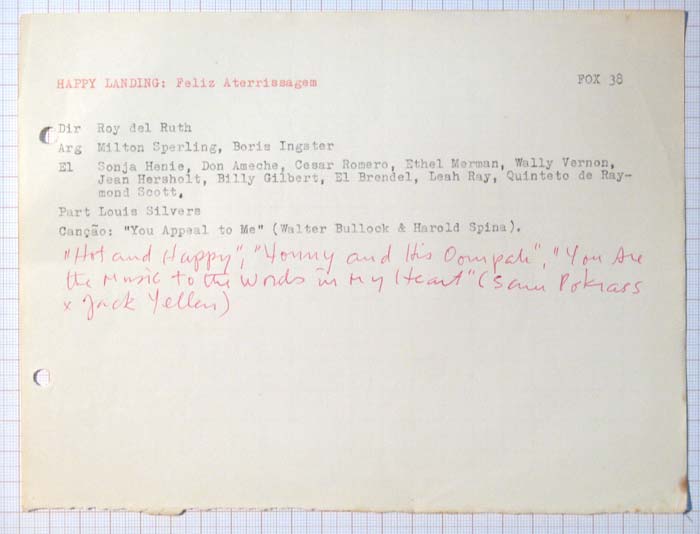 HAPPY LANDING: Feliz Aterrissagem FOX 38
Dir Roy del Ruth
Arg Milton Sperling, Boris Ingster
El Sonja Henie, Don Ameche, Cesar Romero, Ethel Merman, Wally Vernon,
Jean Hersholt, Billy Gilbert, El Brendel, Leah Ray, Quinteto de Ray-
mond Scott,
Part Louis Silvers
Canção: "You Appeal to Me" (Walter Bullock & Harold Spina).
"Hot and Happy", "Yonny and His Oompah", "You Are
the Music to the Words in My Heart" (Sam Pokrass
x Jack Yellen)